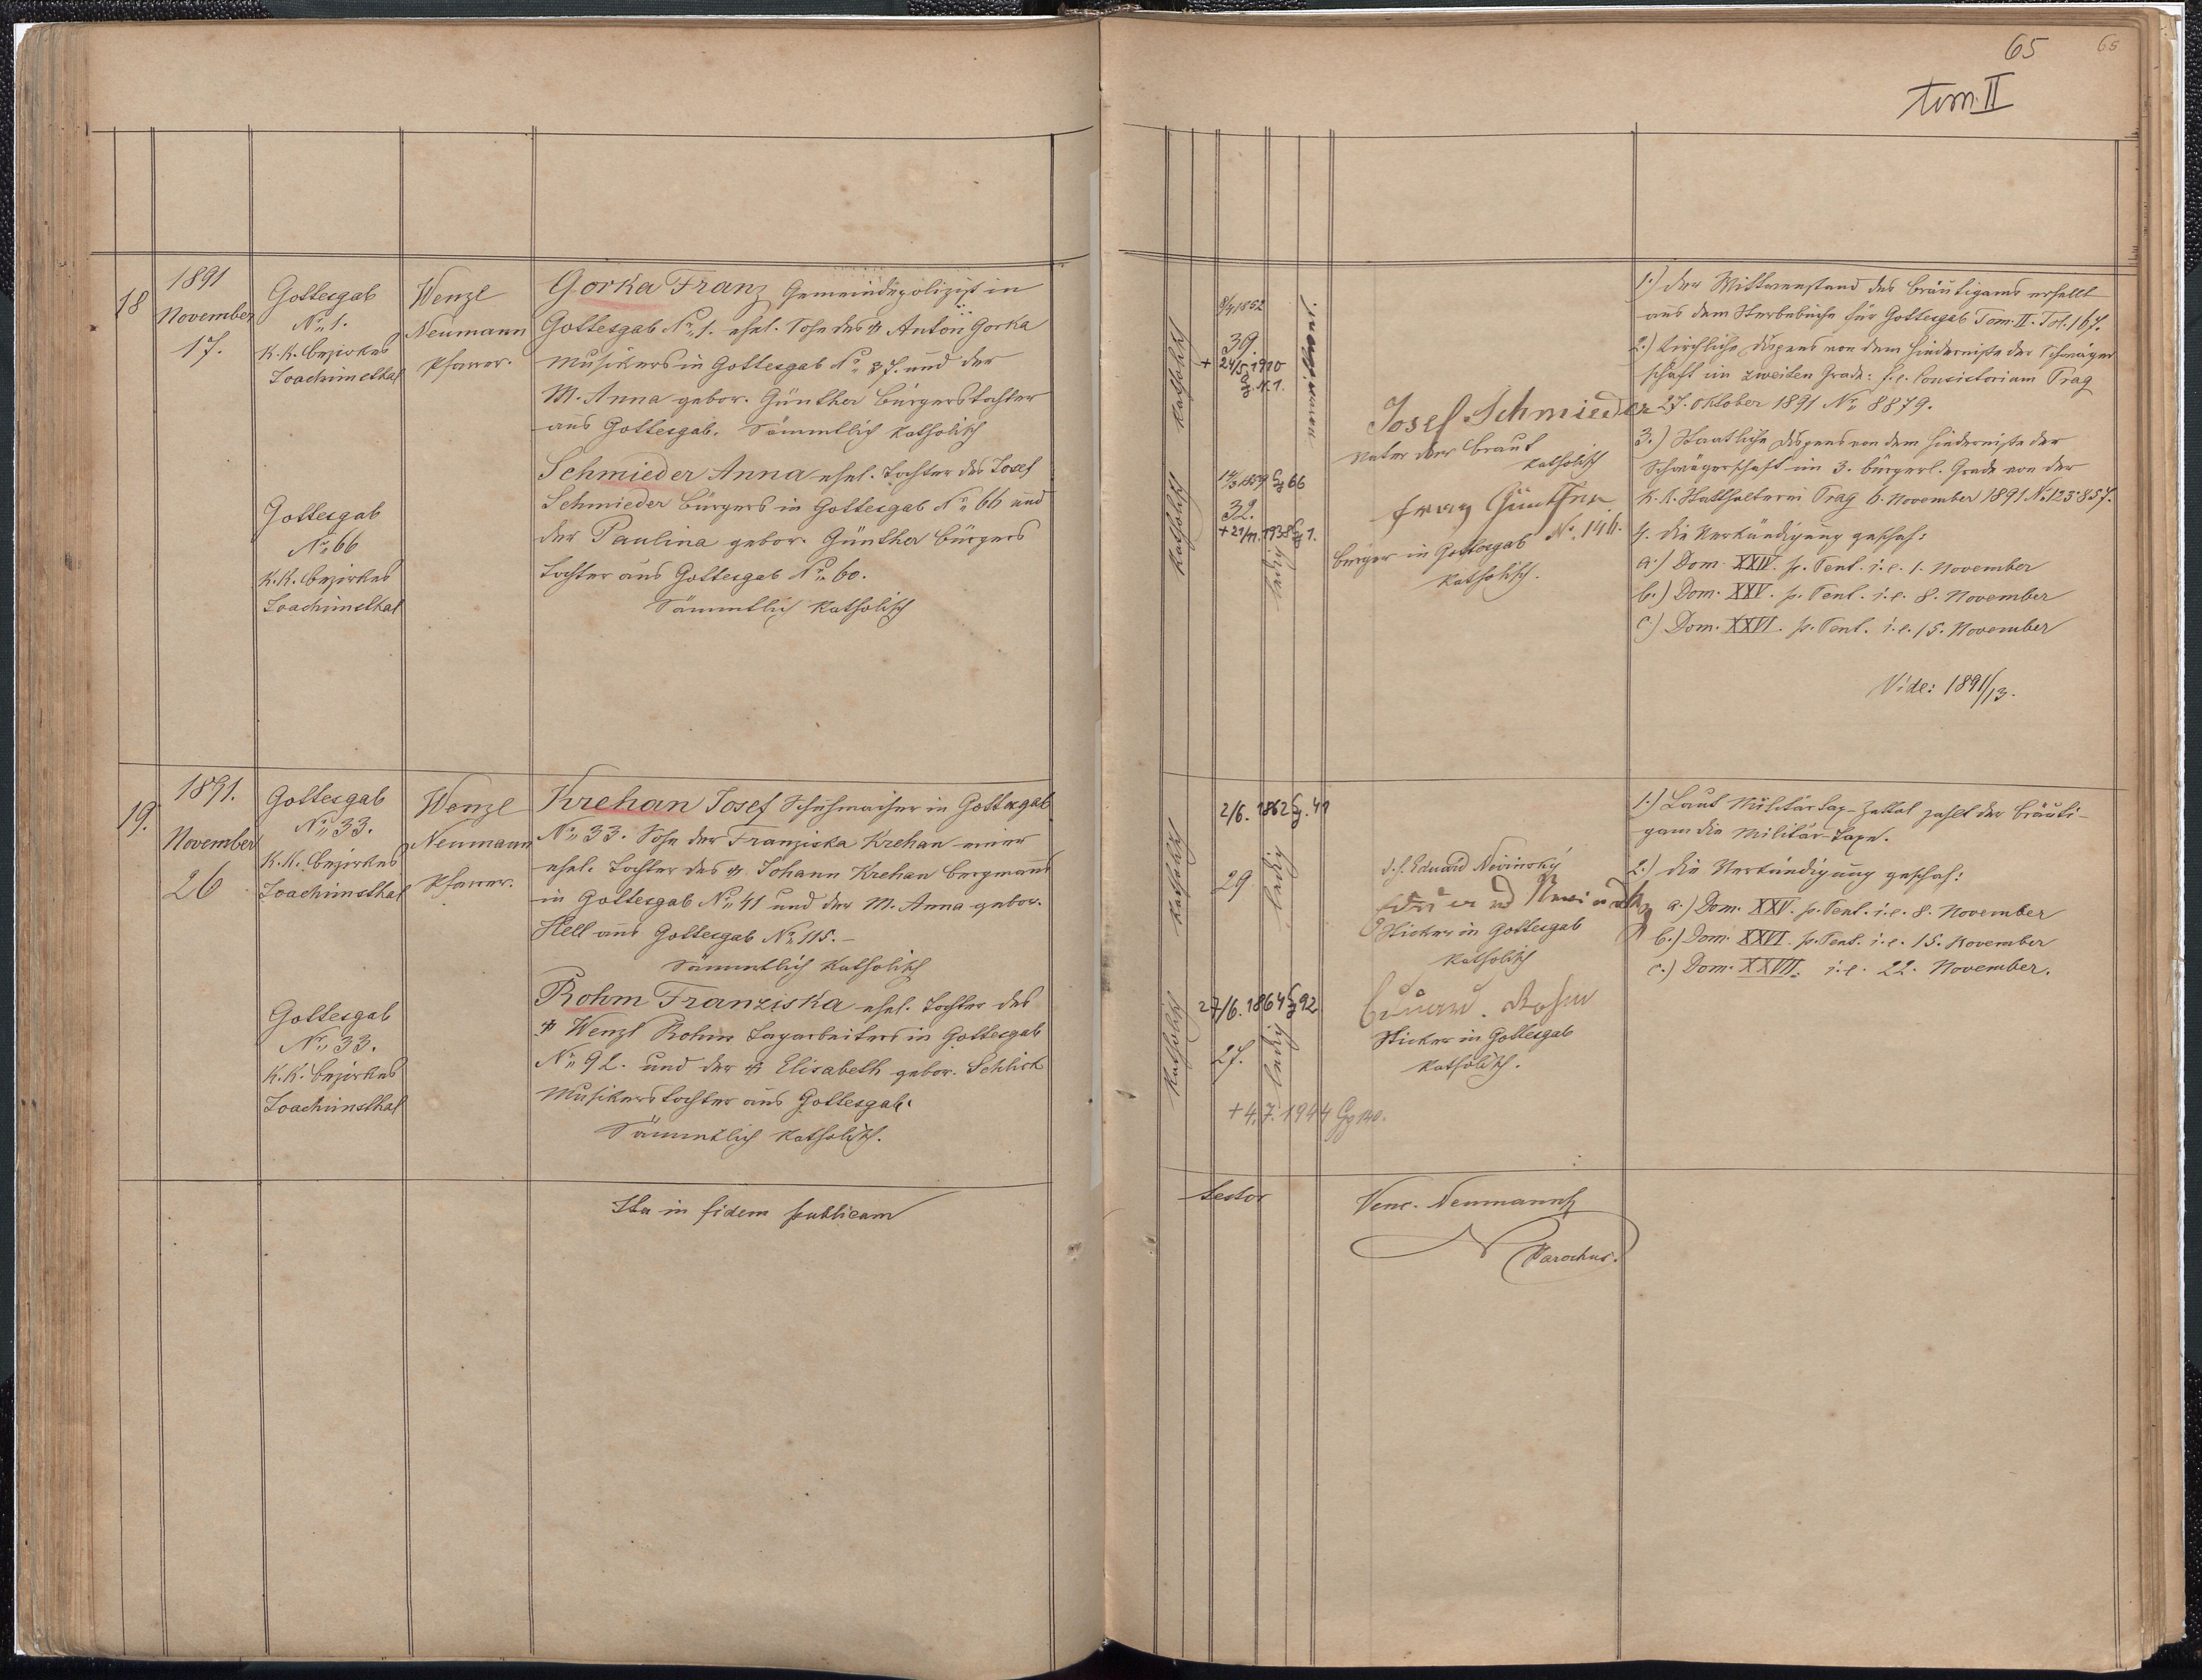 65
65
tom. II
18
1891
November
17.
Gottesgab
No. 1.
K. K. Bezirkes
Joachimsthal
Wenzl
Neumann
Pfarrer.
Gorka Franz Gemeindepolizist in
Gottesgab No. 1. ehel. Sohn des † Anton Gorka
Musikers in Gottesgab No. 37. und der
M. Anna gebor. Günther Bürgerstochter
aus Gottesgab. Sämmtlich katholisch
Gottesgab
No. 66
K. K. Bezirkes
Joachimsthal
Schmieder Anna ehel. Tochter des Josef
Schmieder Bürgers in Gottesgab No. 66 und
der Paulina gebor. Günther Bürgers
tochter aus Gottesgab No. 60.
Sämmtlich katholisch
katholisch
1852
39
+ 24/5 1910
N. 1.
katholisch
1859 66
32.
+ 21/11. 1938 1.
ledig
Josef Schmieder
Vater der Braut
katholisch
Franz Günther
Bürger in Gottesgab No. 146.
katholisch.
1.) Der Wittwenstand des Bräutigams erhellt
aus dem Sterbebuche für Gottesgab Tom. II. Fol. 167.
2.) Kirchliche Dispens von dem Hindernisse der Schwäger
schaft im zweiten Grade: f. e. Consistorium Prag
27. Oktober 1891 No. 8879.
3.) Staatliche Dispens von dem Hindernisse der
Schwägerschaft im 3. bürgerl. Grade von der
K. K. Statthalterei Prag 6. November 1891 No. 123857.
4. Die Verkündigung geschah:
a.) Dom. XXIV. p. Pent. i. e. 1. November
b.) Dom. XXV. p. Pent. i. e. 8. November
c.) Dom. XXVI. p. Pent. i. e. 15. November
Vide: 1891/13.
19.
1891.
November
26
Gottesgab
No. 33.
K. K. Bezirkes
Joachimsthal
Wenzl
Neumann
Pfarrer.
Krehan Josef Schuhmacher in Gottesgab
No. 33. Sohn der Franziska Krehan einer
ehel. Tochter des † Johann Krehan Bergmanns
in Gottesgab No. 41 und der M. Anna gebor.
Hell aus Gottesgab No. 115.-
Sämmtlich katholisch
Gottesgab
No. 33.
K. K. Bezirkes
Joachimsthal
Rohm Franziska ehel. Tochter des
† Wenzl Rohm Tagarbeiters in Gottesgab
No. 92. und der † Elisabeth gebor. Schlick
Musikerstochter aus Gottesgab.
Sämmtlich katholisch.
katholisch
2/6. 1862 41
29
ledig
katholisch
27/6. 1864 92
27.
ledig
+ 4. 7. 1944 Gg 140.
d. h. Eduard Nevinsky
Sticker in Gottesgab
katholisch
Eduard Rohm
Sticker in Gottesgab
katholisch.
1.) Laut Militärtax-Zettel zahlt der Bräuti-
gam die Militär-Taxe.
2.) Die Verkündigung geschah:
a.) Dom. XXV. p. Pent. i. e. 8. November
b.) Dom. XXVI. p. Pent. i. e. 15. November
c.) Dom. XXVII. i. e. 22. November.
Ita in fidem publicam
testor
Venc. Neumann
Parochus.